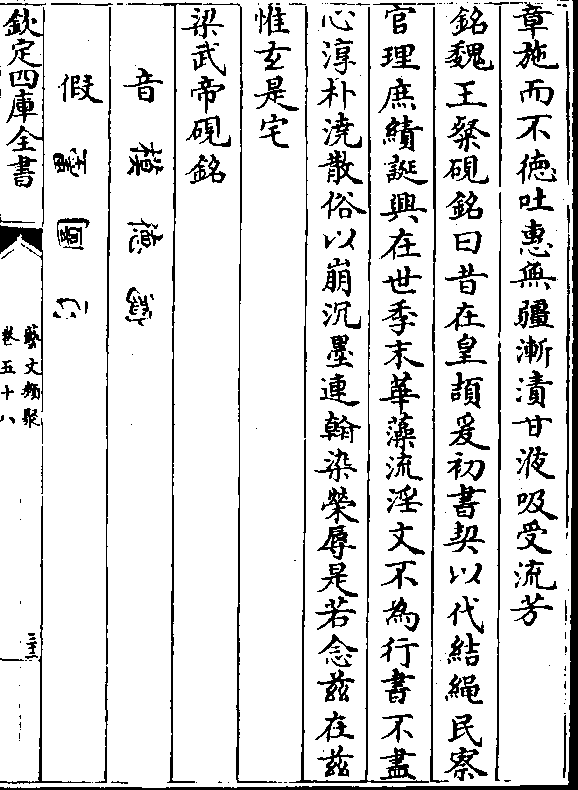 章施而不德吐惠無疆漸漬甘液吸受流芳
銘魏王粲硯銘曰昔在皇頡爰初書契以代結繩民察
官理庶績誕興在世季末華藻流淫文不為行書不盡
心淳朴澆散俗以崩沉墨連翰染榮辱是若念茲在茲
惟玄是宅
梁武帝硯銘
音模德
假圓
欽定四庫全書
藝文類聚
卷五十八
三十二